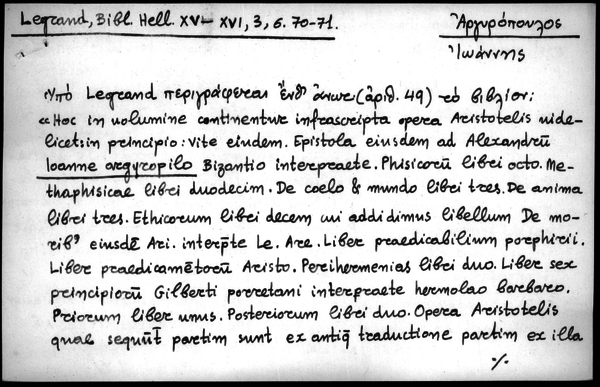 Legrand, Bibl. Hell. XV–XVI, 3, σ. 70-71.
Ἀργυρόπουλος
Ἰωάννης
Ὑπὸ Legrand περιγράφεται ἔνθ' ἄνωτ. (ἀριθ. 49) τὸ βιβλίον:
«Hoc in uolumine continentur infrascripta opera Aristotelis uide-
licet: in principio: vite eiusdem. Epistola eiusdem ad Alexandrū
Ioanne argyropilo Bizantio interpraete. Phisicorū libri octo. Me-
thaphisicae libri duodecim. De coelo & mundo libri tres. De anima
libri tres. Ethicorum libri decem cui addidimus libellum De mo-
rib⁹ eiusdē Ari. interp̄te Le. Are. Liber praedicabilium porphirii.
Liber praedicamētorū Aristo. Perihermenias libri duo. Liber sex
principiorū Gilberti porretani interpraete hermolao barbaro.
Priorum liber unus. Posteriorum libri duo. Opera Aristotelis
quae sequūt partim sunt ex antiq̄ traductione partim ex illa
./.